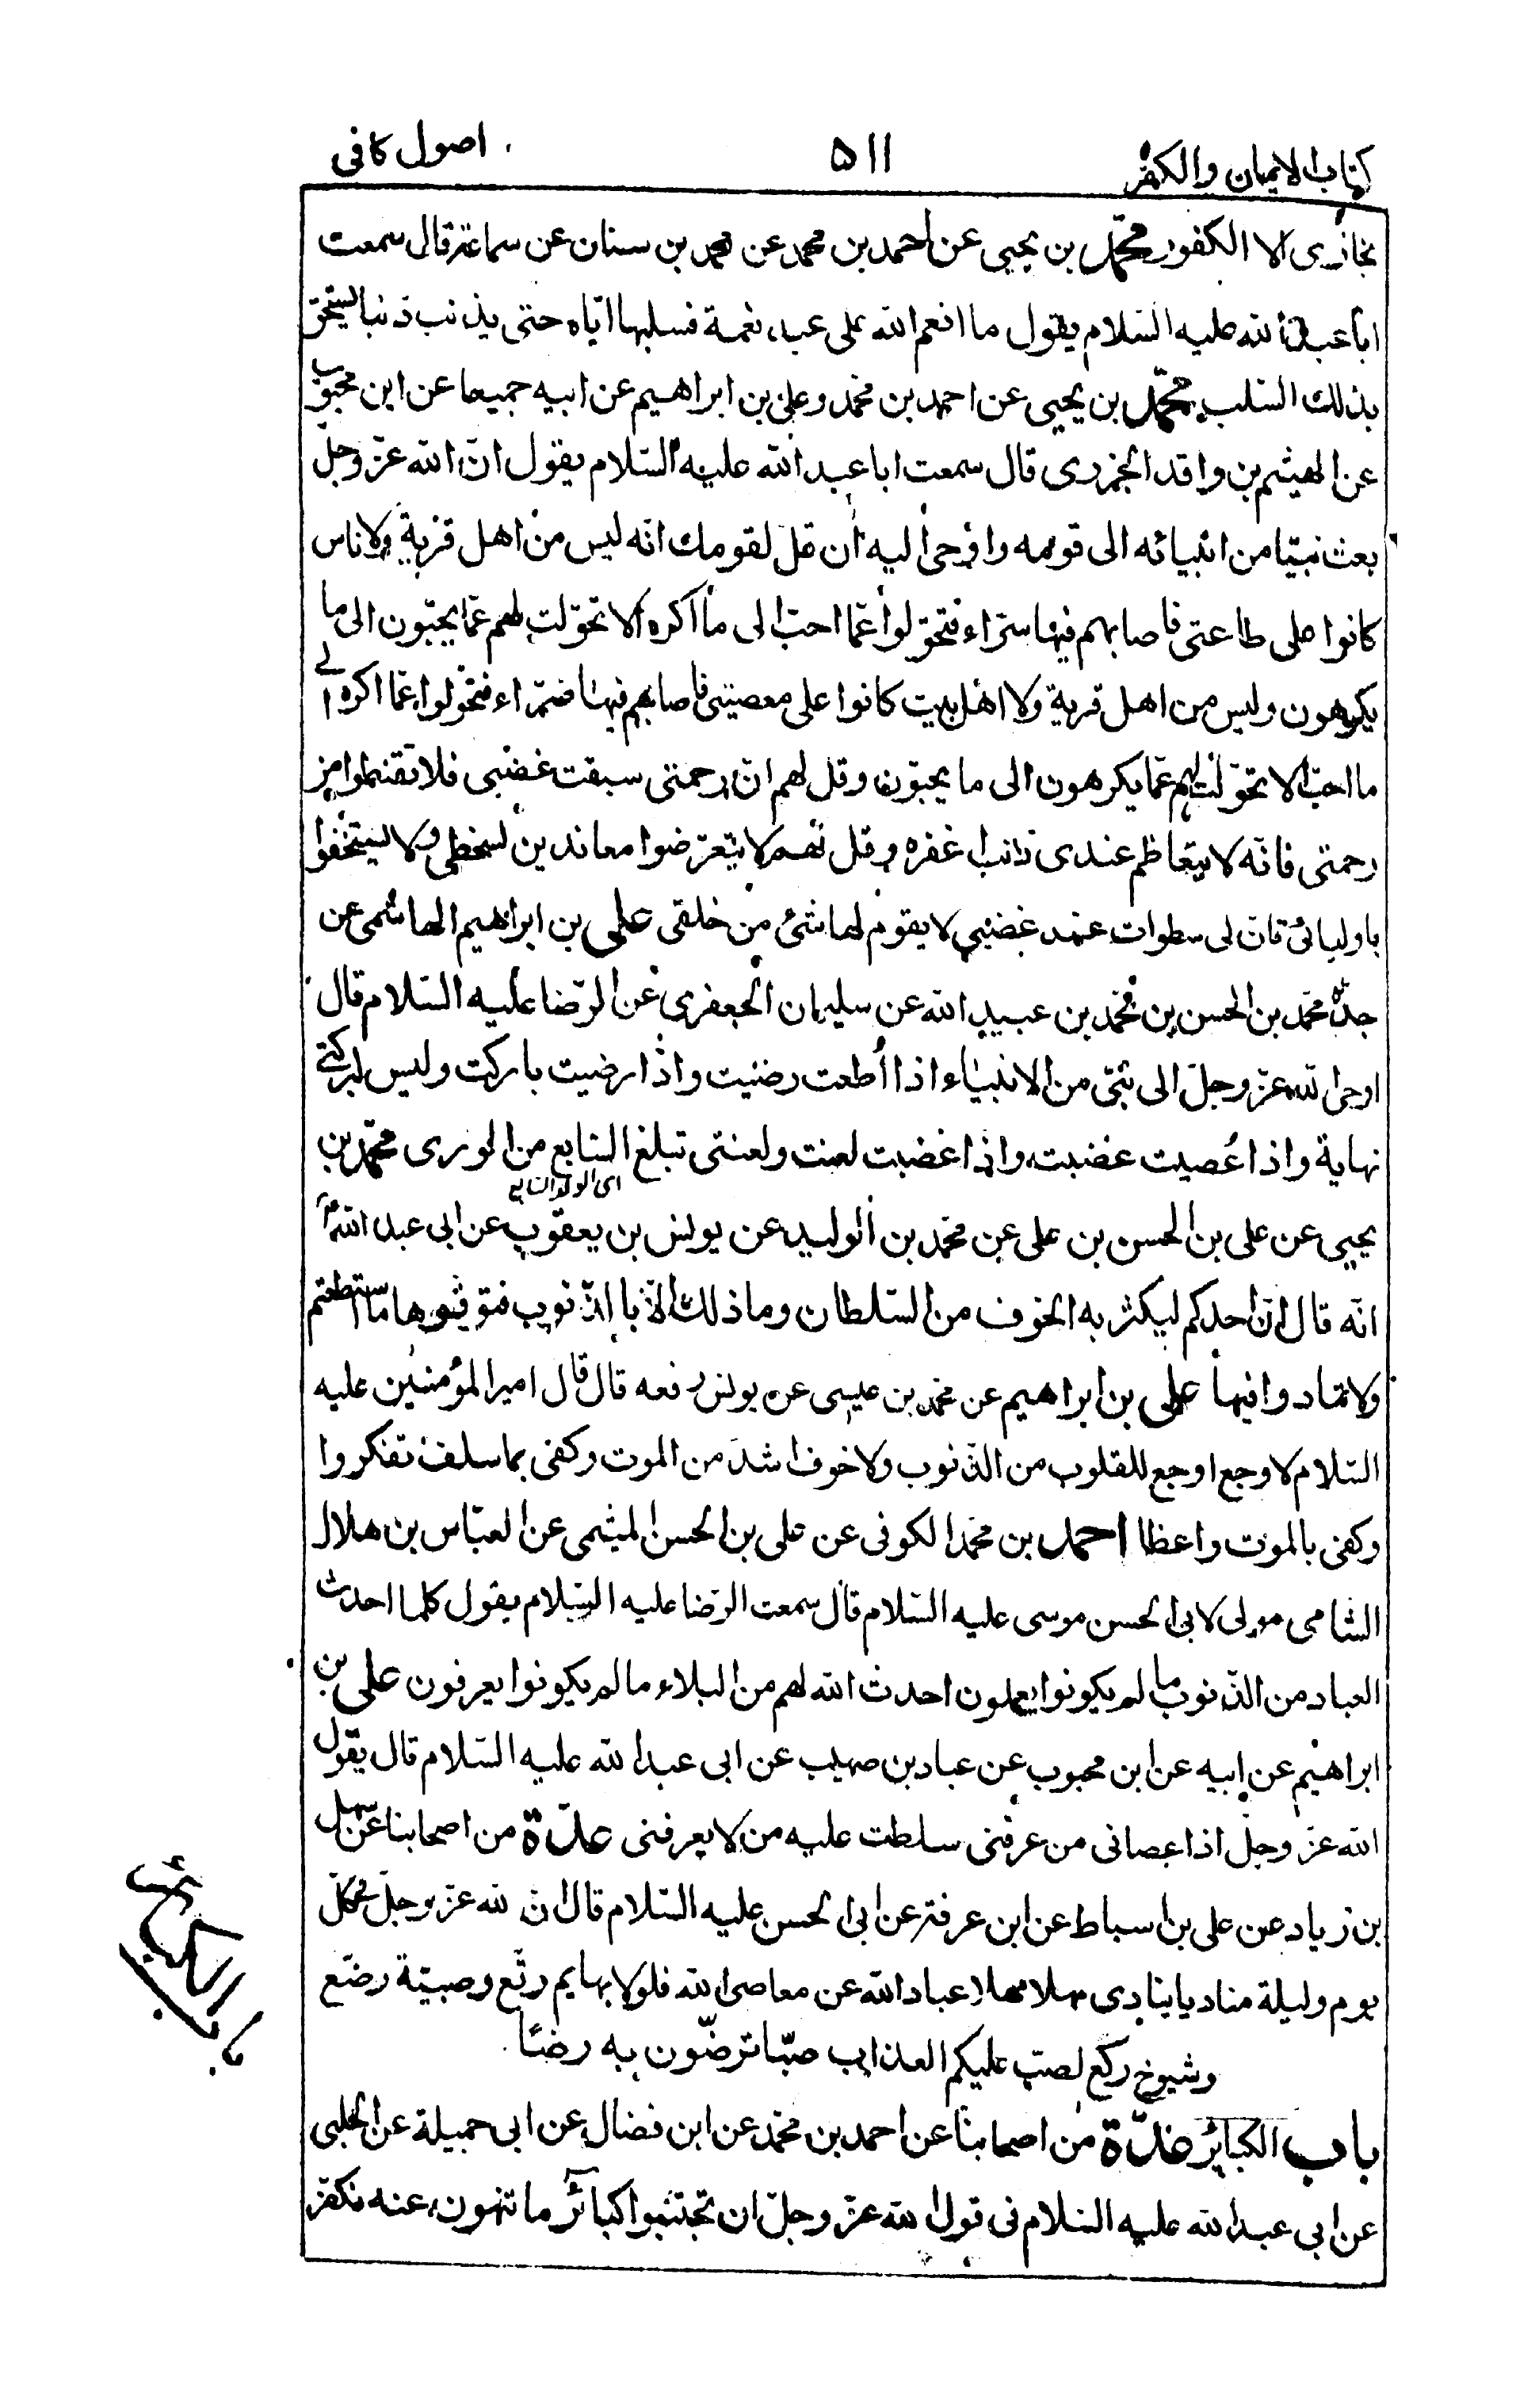 كتاب الايمان والكفر
۵۱۱
اصول كافى
نجازى الا الكفور محمّد بن يحيى عن احمد بن محمد عن محمد بن سنان عن سماعة قال سمعت
ابا عبد الله عليه السّلام يقول ما انعم الله على عبد نعمة فسلبها ايّاه حتى يذنب ذنبا يستحق
بذلك السّلب محمّد بن يحيى عن احمد بن محمّد وعلى بن ابراهيم عن ابيه جميعا عن ابن محبوب
عن الهيثم بن واقد الجزرى قال سمعت ابا عبد الله عليه السّلام يقول انّ الله عزّ وجلّ
بعث نبيّا من انبيائه الى قومه واوحى اليه ان قل لقومك انّه ليس من اهل قرية ولا ناس
كانوا على طاعتى فاصابهم فيها سرّاء فتحوّلوا عمّا احبّ الى ما اكره الا تحوّلت لهم عمّا يحبّون الى ما
يكرهون وليس من اهل قرية ولا اهل بيت كانوا على معصيتى فاصابهم فيها ضرّاء فتحوّلوا عمّا اكره الى
ما احبّ الا تحوّلت لهم عمّا يكرهون الى ما يحبّون وقل لهم انّ رحمتى سبقت غضبى فلا تقنطوا من
رحمتى فانّه لا يتعاظم عندى ذنب اغفره وقل لهم لا يتعرّضوا معاندين لسخطى ولا يستخفّوا
باوليائى فان لى سطوات عند غضبى لا يقوم لها شئ من خلقى على بن ابراهيم الهاشمى عن
جدّه محمّد بن الحسن بن محمّد بن عبيد الله عن سليمان الجعفرى عن الرّضا عليه السّلام قال
اوحى الله عزّ وجلّ الى نبىّ من الانبياء اذا اُطعت رضيت واذا رضيت باركت وليس لبركتى
نهاية واذا عُصيت غضبت واذا غضبت لعنت ولعنتى تبلغ السّابع من الورى محمّد بن
يحيى عن على بن الحسن بن على عن محمّد بن الوليد عن يونس بن يعقوب عن ابى عبد الله ع
انّه قال انّ احدكم ليكثر به الخوف من السّلطان وما ذلك الّا بالذّنوب فتوقّوها ما استطعتم
ولا تمادوا فيها على بن ابراهيم عن محمّد بن عيسى عن يونس رفعه قال قال امير المؤمنين عليه
السّلام لا وجع اوجع للقلوب من الذّنوب ولا خوف اشدّ من الموت وكفى بما سلف تفكروا
وكفى بالموت واعظا احمد بن محمّد الكوفى عن على بن الحسن الميثمى عن العبّاس بن هلال
الشّامى مولى لابى الحسن موسى عليه السّلام قال سمعت الرّضا عليه السّلام يقول كلما احدث
العباد من الذّنوب ما لم يكونوا يعملون احدث الله لهم من البلاء ما لم يكونوا يعرفون على بن
ابراهيم عن ابيه عن ابن محبوب عن عباد بن صهيب عن ابى عبد الله عليه السّلام قال يقول
الله عزّ وجلّ اذا عصانى من عرفنى سلطت عليه من لا يعرفنى عدّة من اصحابنا عن سهل
بن زياد عن على بن اسباط عن ابن عرفة عن ابى الحسن عليه السّلام قال انّ لله عزّ وجلّ فى كلّ
يوم وليلة مناديا ينادى مهلا مهلا عباد الله عن معاصى الله فلولا بهايم رتّع وصبيّة رضّع
وشيوخ ركّع لصبّ عليكم العذاب صبّا ترضّون به رضّا
باب الكبائر
باب الكبائر عدّة من اصحابنا عن احمد بن محمّد عن ابن فضال عن ابى جميلة عن الحلبى
عن ابى عبد الله عليه السّلام فى قول الله عزّ وجلّ ان تجتنبوا كبائر ما تنهون عنه نكفّر